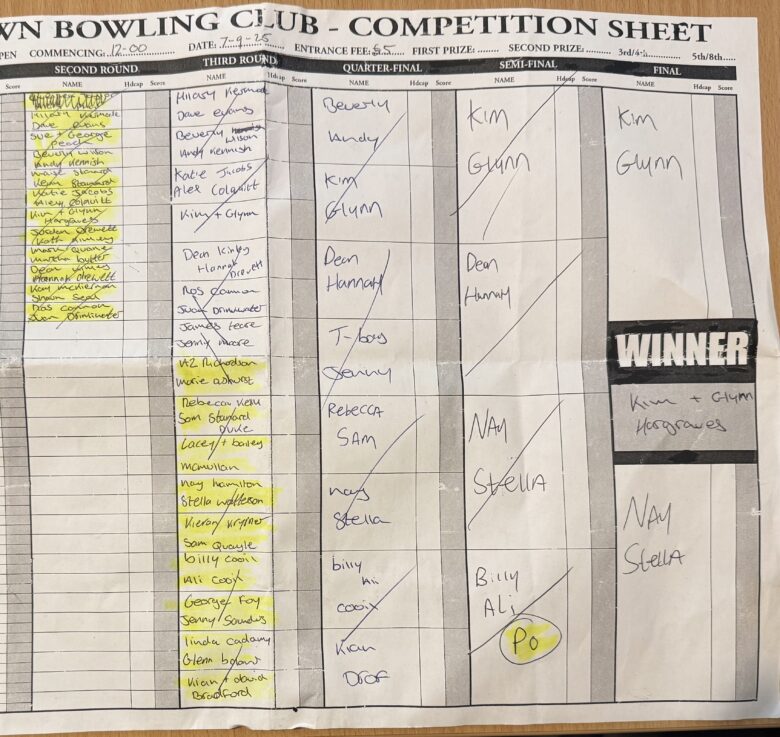 WN BOWLING CLUB - COMPETITION SHEET
PEN COMMENCING: 12-00 DATE: 7-9-25 ENTRANCE FEE: £5 FIRST PRIZE: ........ SECOND PRIZE: ........ 3rd/4th: ........ 5th/8th: ........
SECOND ROUND
Score NAME Hdcap Score
Hilary Kermode
Dave evans
Sue + George
Peach
Beverly wilson
Andy Kennish
Kevin Stanard
Katie Jacobs
Alex Colquitt
Kim + Glynn
Hargraves
Jordan Drewett
Kath Kinnley
Mark Quane
Martha
Dean Kinley
Hannah Drewett
Kay Mckiernan
Shaun Seal
Ros Cannon
Juan Drinkwater
THIRD ROUND
NAME Hdcap Score
Hilary Kermode
Dave evans
Beverly wilson
Andy Kennish
Katie Jacobs
Alex Colquitt
Kim + Glynn
Dean Kinley
Hannah
Drewett
Ros Cannon
Juan Drinkwater
James teare
Jenny moore
Richardson
Marie ashurst
Rebecca Kelly
Sam Stanard
Duke
Lacey + bailey
mcmullan
nay hamilton
Stella watterson
Kieron
Sam Quayle
billy cooix
Ali Cooix
George Foy
Jenny Saunders
linda cadamy
Glenn boland
Kian + david
Bradford
QUARTER-FINAL
NAME Hdcap Score
Beverly
Andy
Kim
Glynn
Dean
Hannah
T-boy
Jenny
Rebecca
SAM
nay
Stella
billy
Ali
cooix
Kian
SEMI-FINAL
NAME Hdcap Score
Kim
Glynn
Dean
Hannah
NAy
Stella
Billy
Ali
Po
FINAL
NAME Hdcap Score
Kim
Glynn
WINNER
Kim + Glynn
Hargraves
NAy
Stella